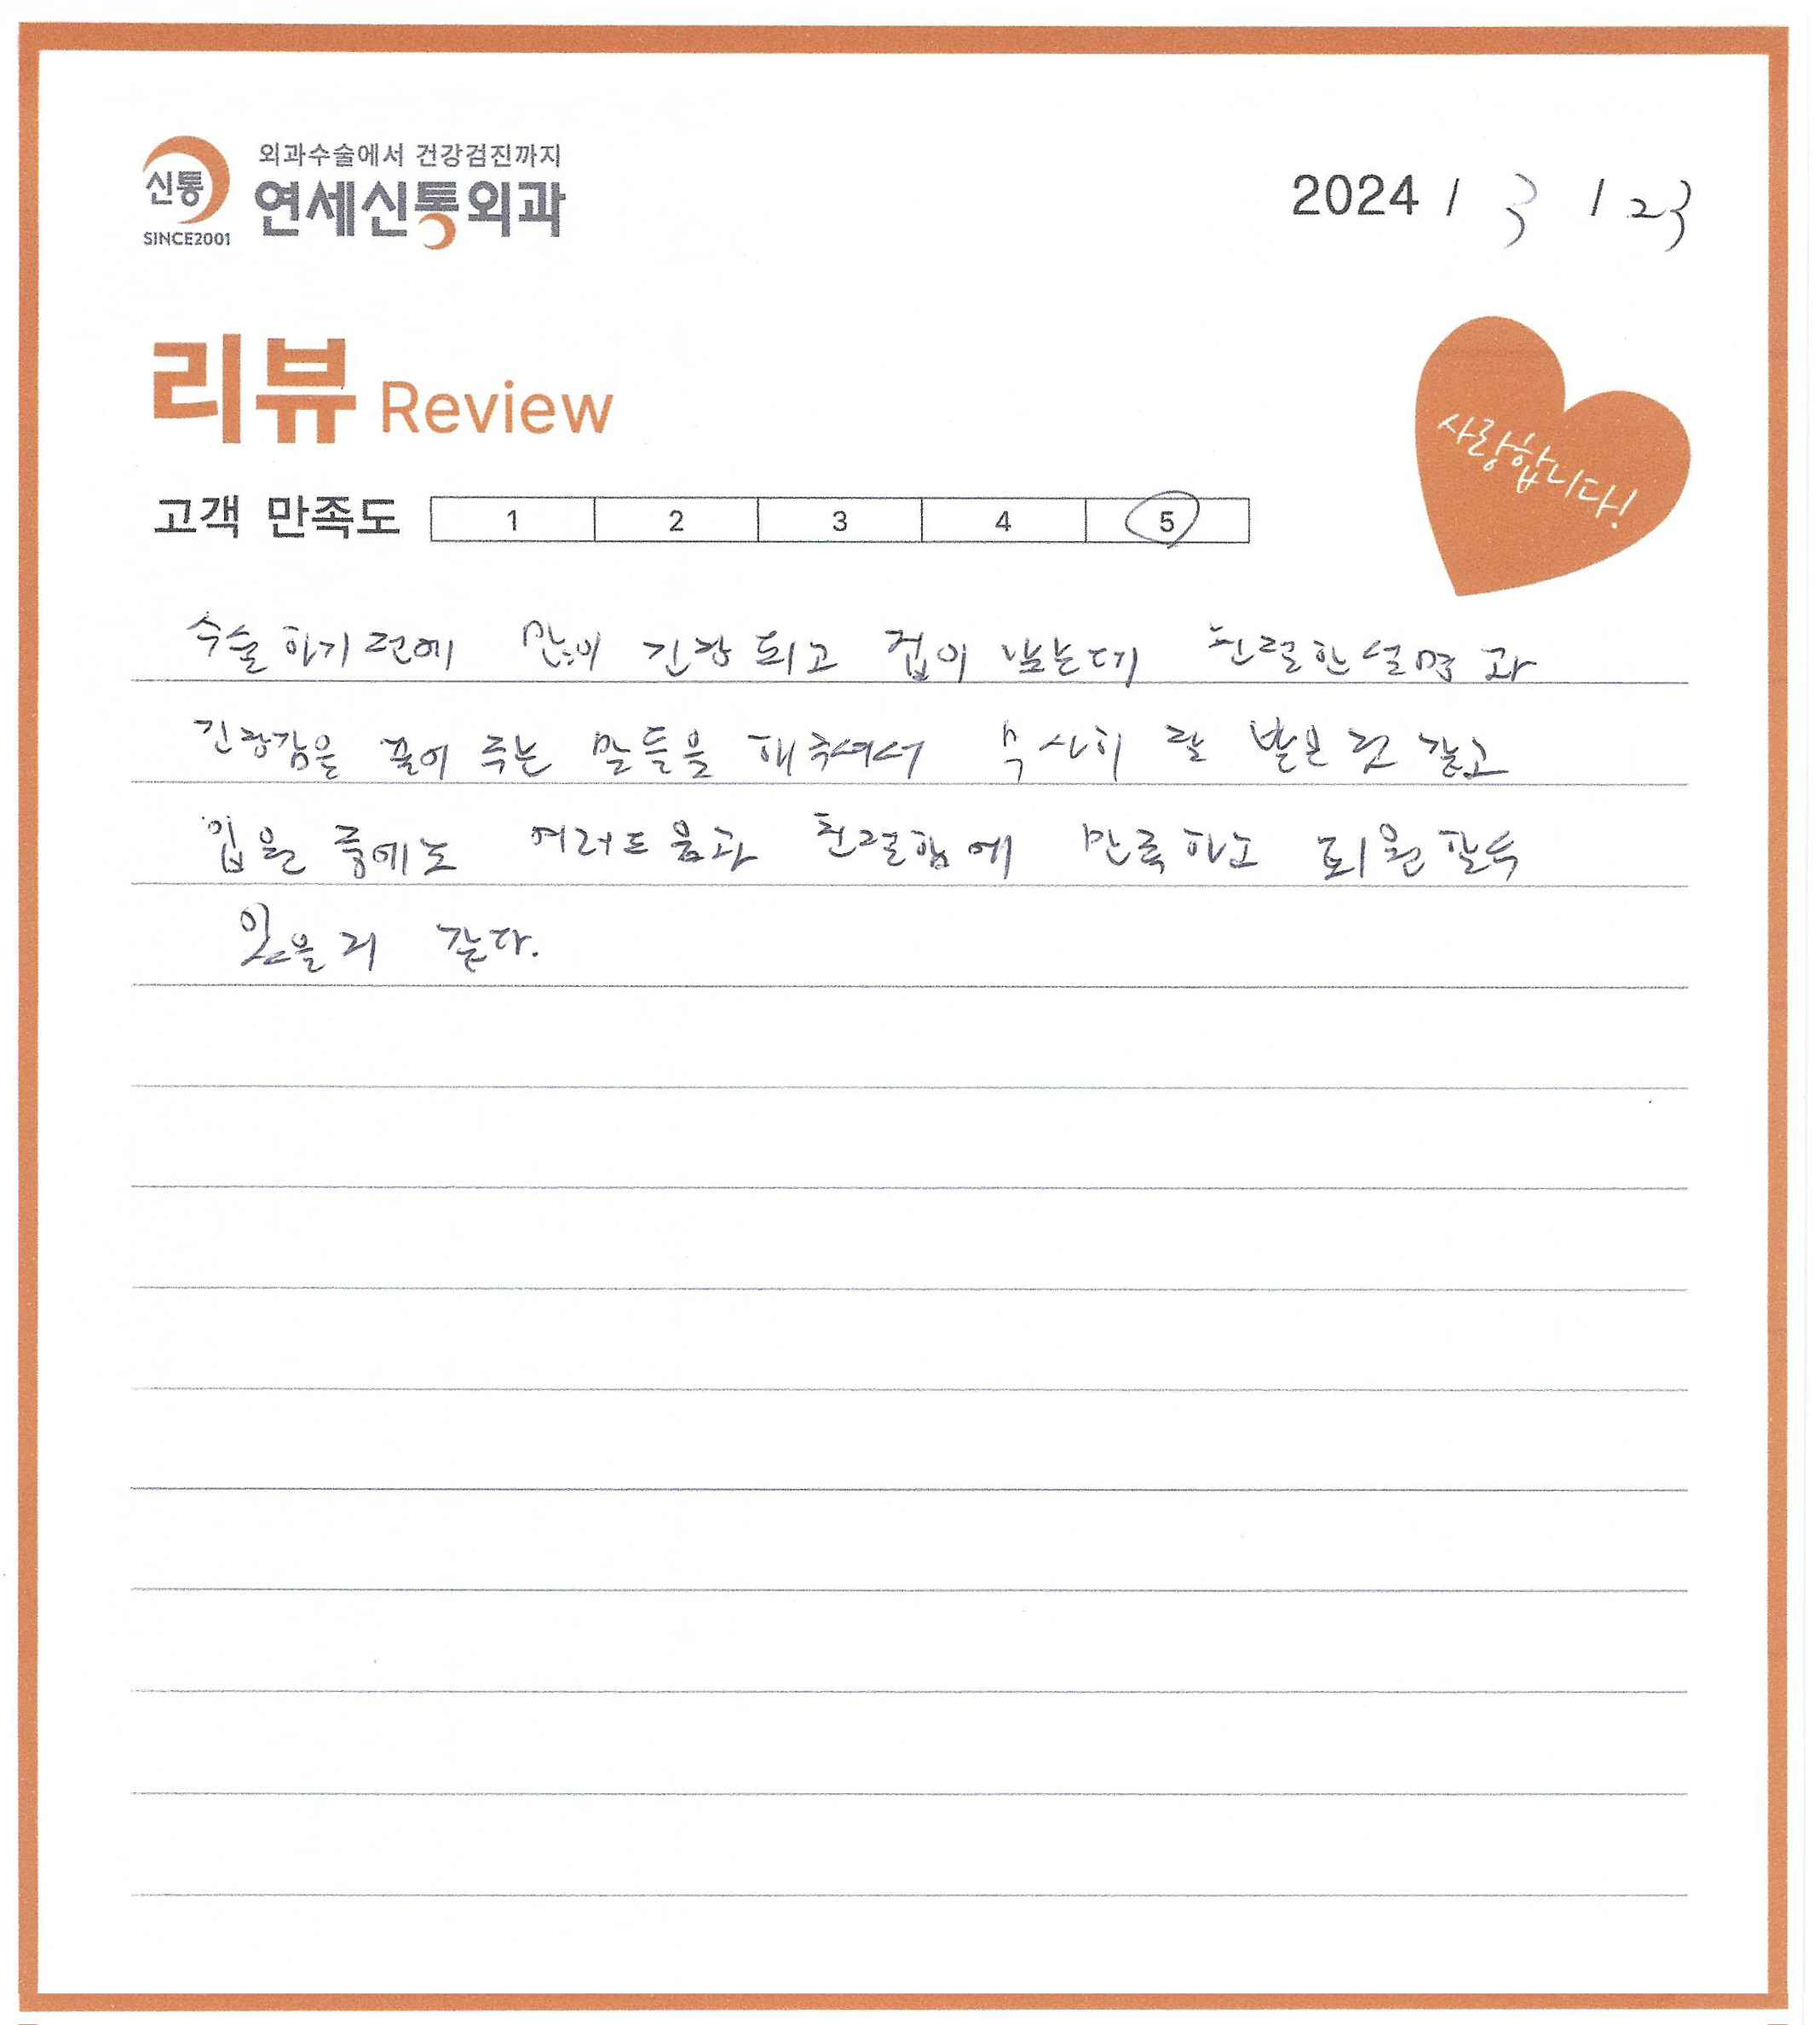 외과수술에서 건강검진까지
신통 연세신통외과
SINCE2001
2024 / 3 / 23
리뷰 Review
사랑합니다!
고객 만족도 1 2 3 4 5
수술하기 전에 많이 긴장되고 겁이 났는데 친절한 설명과
긴장감을 풀어 주는 말들을 해주셔서 무사히 잘 받은 것 같고
입원 중에도 여러 도움과 친절함에 만족하고 퇴원 할수
있을거 같다.